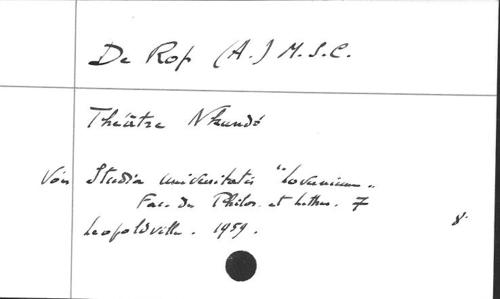 De Rop (A.) M.S.C.
Théâtre Nkundó
Voir Studia Universitatis "Lovanium".
Fac. de Philos. et Lettres. 7
Leopoldville. 1959.
8°